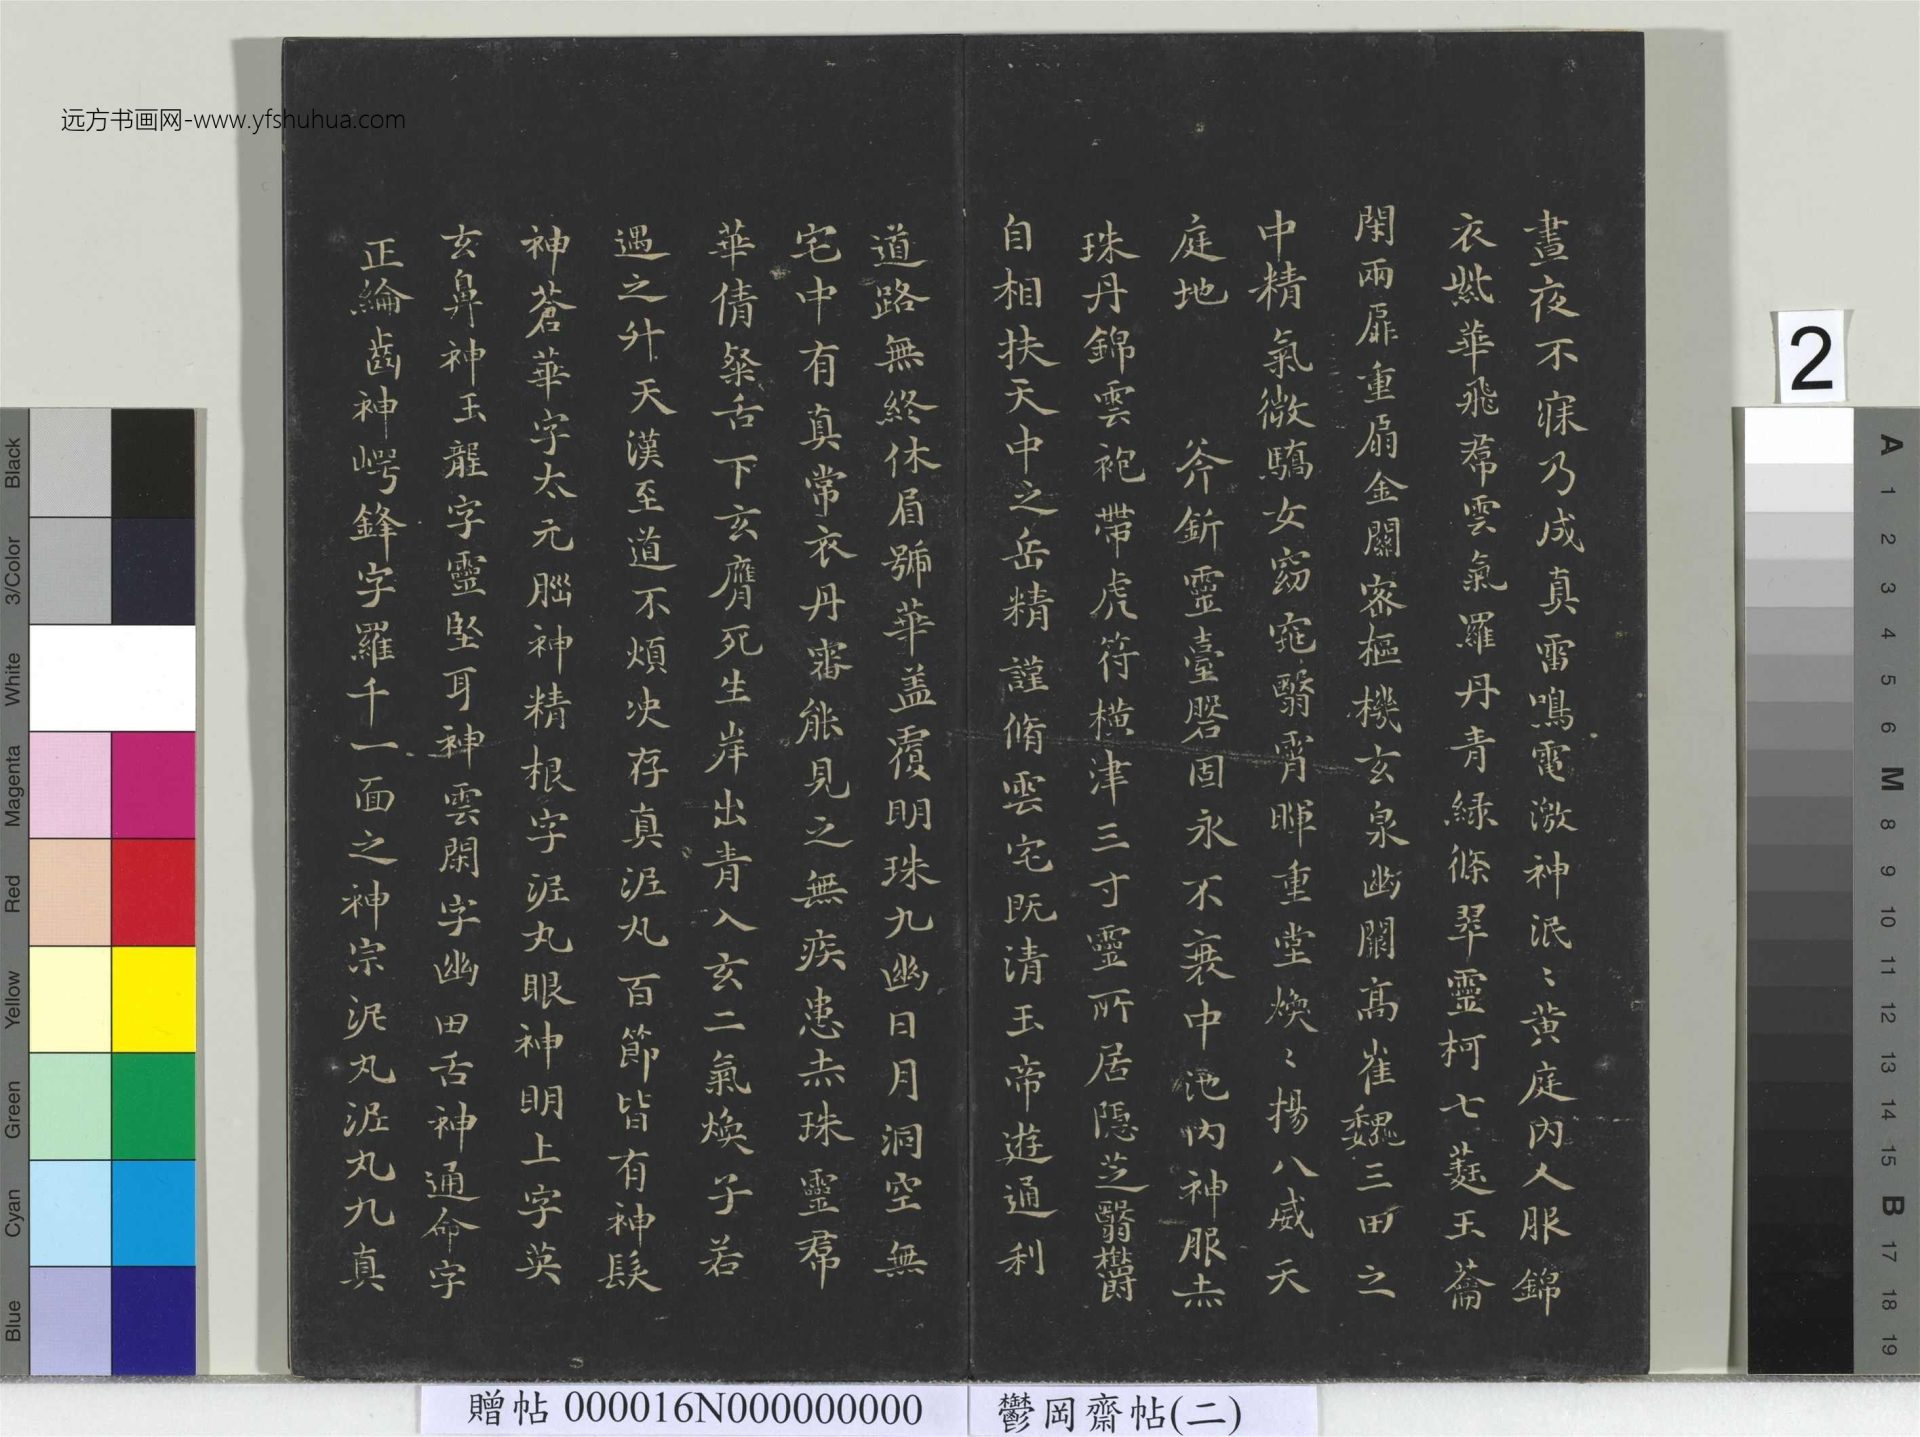 晝夜不寐乃成真雷鳴電激神泯〻黄庭内人服錦
衣紫華飛帬雲氣羅丹青緑條翠靈柯七蕤玉籥
閇兩扉重扇金關密樞機玄泉幽關高崔巍三田之
中精氣微驕女窈窕翳霄暉重堂煥〻揚八威天
庭地 斧釿靈臺磐固永不衰中池内神服赤
珠丹錦雲袍帶虎符横津三寸靈所居隱芝翳欝
自相扶天中之岳精謹脩雲宅既清玉帝遊通利
道路無終休眉號華盖覆明珠九幽日月洞空無
宅中有真常衣丹審能見之無疾患赤珠靈帬
華倩粲舌下玄膺死生岸出青入玄二氣煥子若
遇之升天漢至道不煩决存真泥丸百節皆有神髮
神蒼華字太元腦神精根字泥丸眼神明上字英
玄鼻神玉龍字靈堅耳神雲閑字幽田舌神通命字
正綸齒神崿鋒字羅千一面之神宗泥丸泥丸九真
远方书画网-www.yfshuhua.com
2
Black
3/Color
White
Magenta
Red
Yellow
Green
Cyan
Blue
A
1
2
3
4
5
6
M
8
9
10
11
12
13
14
15
B
17
18
19
贈帖 000016N000000000
鬱岡齋帖(二)